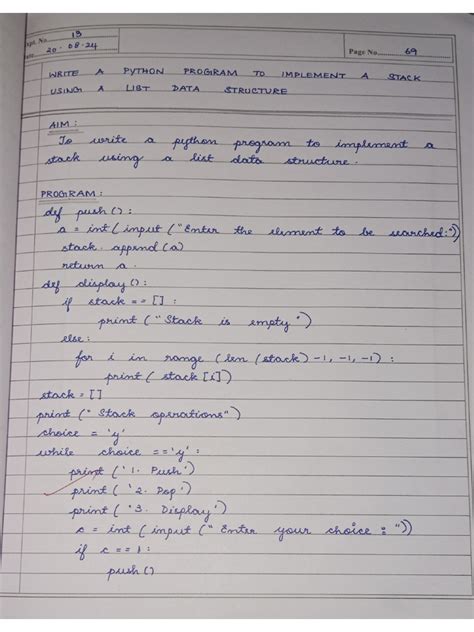 Expt. No. 13
Date 20.08.24
Page No. 69
WRITE A PYTHON PROGRAM TO IMPLEMENT A STACK
USING A LIST DATA STRUCTURE
AIM :
To write a python program to implement a
stack using a list data structure.
PROGRAM :
def push () :
a = int ( input ( "Enter the element to be searched: "))
stack. append (a)
return a
def display () :
if stack == [] :
print ( "Stack is empty")
else :
for i in range (len (stack) -1, -1, -1) :
print ( stack [i])
stack = []
print (" Stack operations")
choice = 'y'
while choice == 'y' :
print ( '1. Push')
print ( '2. Pop')
print ( '3. Display')
c = int ( input (" Enter your choice : "))
if c == 1 :
push ()